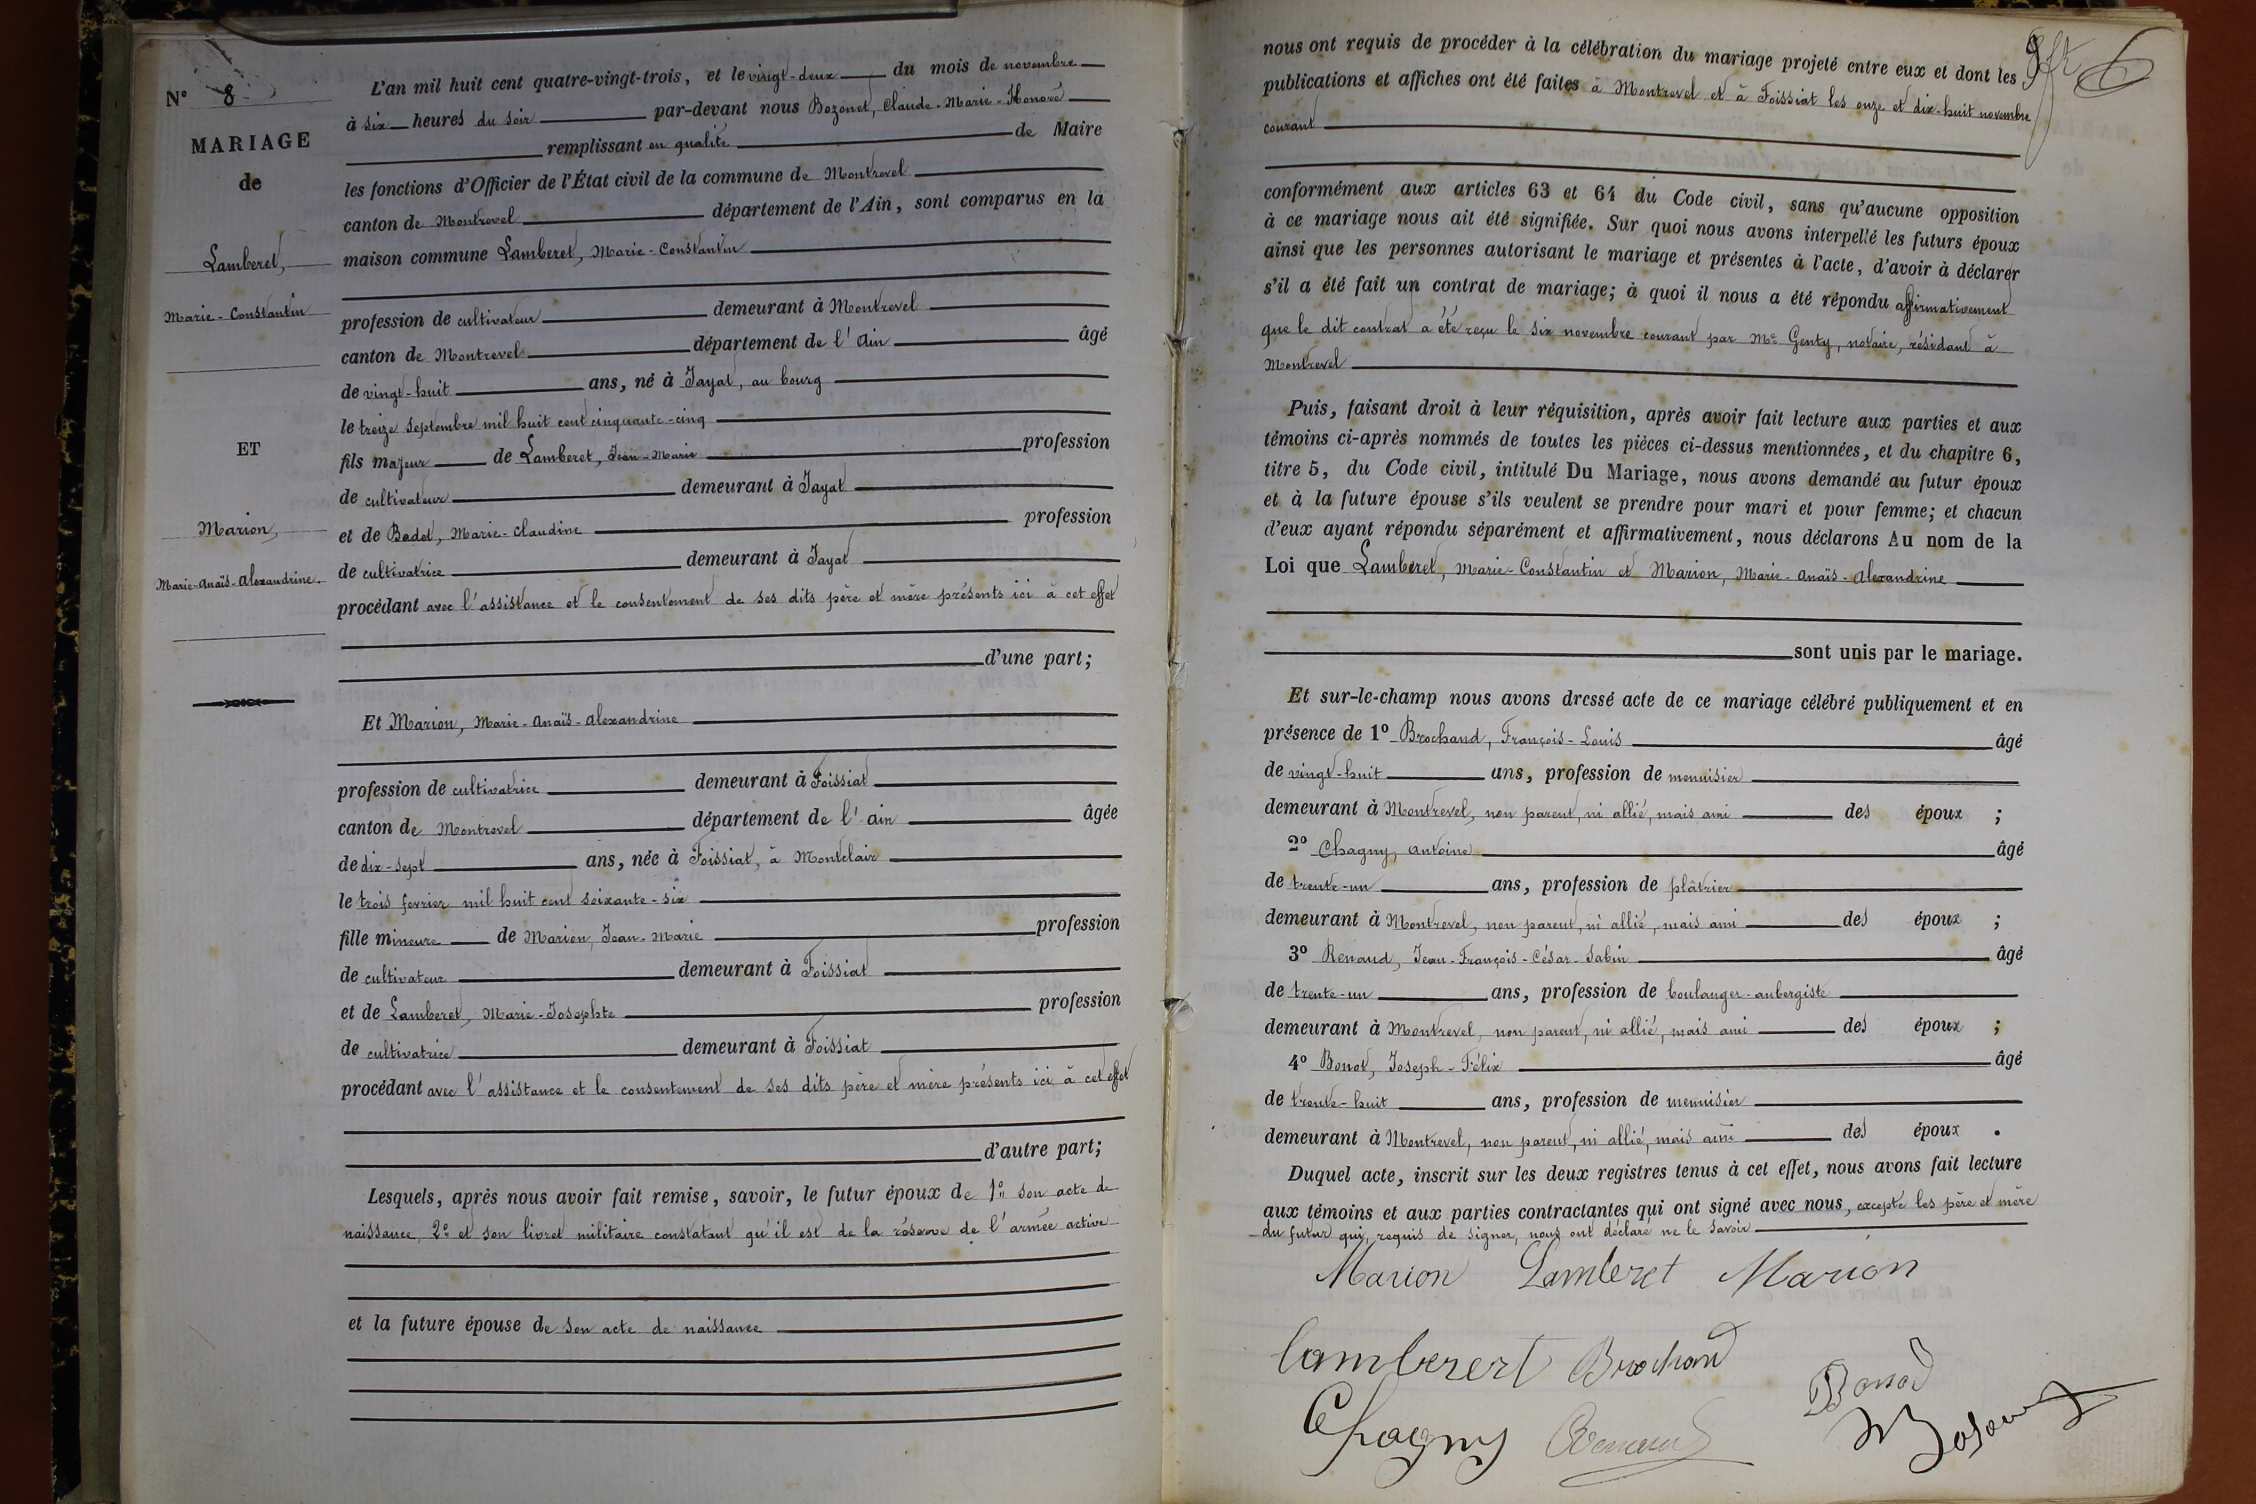 N° 8
MARIAGE
de
Lamberet,
Marie-Constantin
ET
Marion,
Marie-Anaïs-Alexandrine.
L'an mil huit cent quatre-vingt-trois, et le vingt-deux du mois de novembre
à six heures du soir par-devant nous Bozonet, Claude-Marie-Honoré
remplissant en qualité de Maire
les fonctions d'Officier de l'État civil de la commune de Montrevel
canton de Montrevel département de l'Ain, sont comparus en la
maison commune Lamberet, Marie-Constantin
profession de cultivateur demeurant à Montrevel
canton de Montrevel département de l'Ain âgé
de vingt-huit ans, né à Jayat, au bourg
le treize septembre mil huit cent cinquante-cinq
fils majeur de Lamberet, Jean-Marie profession
de cultivateur demeurant à Jayat
et de Badet, Marie-Claudine profession
de cultivatrice demeurant à Jayat
procédant avec l'assistance et le consentement de ses dits père et mère présents ici à cet effet
d'une part;
Et Marion, Marie-Anaïs-Alexandrine
profession de cultivatrice demeurant à Foissiat
canton de Montrevel département de l'Ain âgée
de dix-sept ans, née à Foissiat, à Montclair
le trois fevrier mil huit cent soixante-six
fille mineure de Marion, Jean-Marie profession
de cultivateur demeurant à Foissiat
et de Lamberet, Marie-Josephte profession
de cultivatrice demeurant à Foissiat
procédant avec l'assistance et le consentement de ses dits père et mère présents ici à cet effet
d'autre part;
Lesquels, après nous avoir fait remise, savoir, le futur époux de 1° son acte de
naissance, 2° et son livret militaire constatant qu'il est de la réserve de l'armée active
et la future épouse de son acte de naissance
6
nous ont requis de procéder à la célébration du mariage projeté entre eux et dont les
publications et affiches ont été faites à Montrevel et à Foissiat les onze et dix-huit novembre
courant
conformément aux articles 63 et 64 du Code civil, sans qu'aucune opposition
à ce mariage nous ait été signifiée. Sur quoi nous avons interpellé les futurs époux
ainsi que les personnes autorisant le mariage et présentes à l'acte, d'avoir à déclarer
s'il a été fait un contrat de mariage; à quoi il nous a été répondu affirmativement
que le dit contrat a été reçu le six novembre courant par Me Genty, notaire, résidant à
Montrevel
Puis, faisant droit à leur réquisition, après avoir fait lecture aux parties et aux
témoins ci-après nommés de toutes les pièces ci-dessus mentionnées, et du chapitre 6,
titre 5, du Code civil, intitulé Du Mariage, nous avons demandé au futur époux
et à la future épouse s'ils veulent se prendre pour mari et pour femme; et chacun
d'eux ayant répondu séparément et affirmativement, nous déclarons Au nom de la
Loi que Lamberet, Marie-Constantin et Marion, Marie-Anaïs-Alexandrine
sont unis par le mariage.
Et sur-le-champ nous avons dressé acte de ce mariage célébré publiquement et en
présence de 1° Brochand, François-Louis âgé
de vingt-huit ans, profession de menuisier
demeurant à Montrevel, non parent, ni allié, mais ami des époux ;
2° Chagny, Antoine âgé
de trente-un ans, profession de plâtrier
demeurant à Montrevel, non parent, ni allié, mais ami des époux ;
3° Renaud, Jean-François-César-Sabin âgé
de trente-un ans, profession de boulanger-aubergiste
demeurant à Montrevel, non parent, ni allié, mais ami des époux ;
4° Bonot, Joseph-Félix âgé
de trente-huit ans, profession de menuisier
demeurant à Montrevel, non parent, ni allié, mais ami des époux .
Duquel acte, inscrit sur les deux registres tenus à cet effet, nous avons fait lecture
aux témoins et aux parties contractantes qui ont signé avec nous, excepté les père et mère
du futur qui, requis de signer, nous ont déclaré ne le savoir
Marion Lamberet Marion
Lamberert Brochand
Bonod
Chagny Renaud